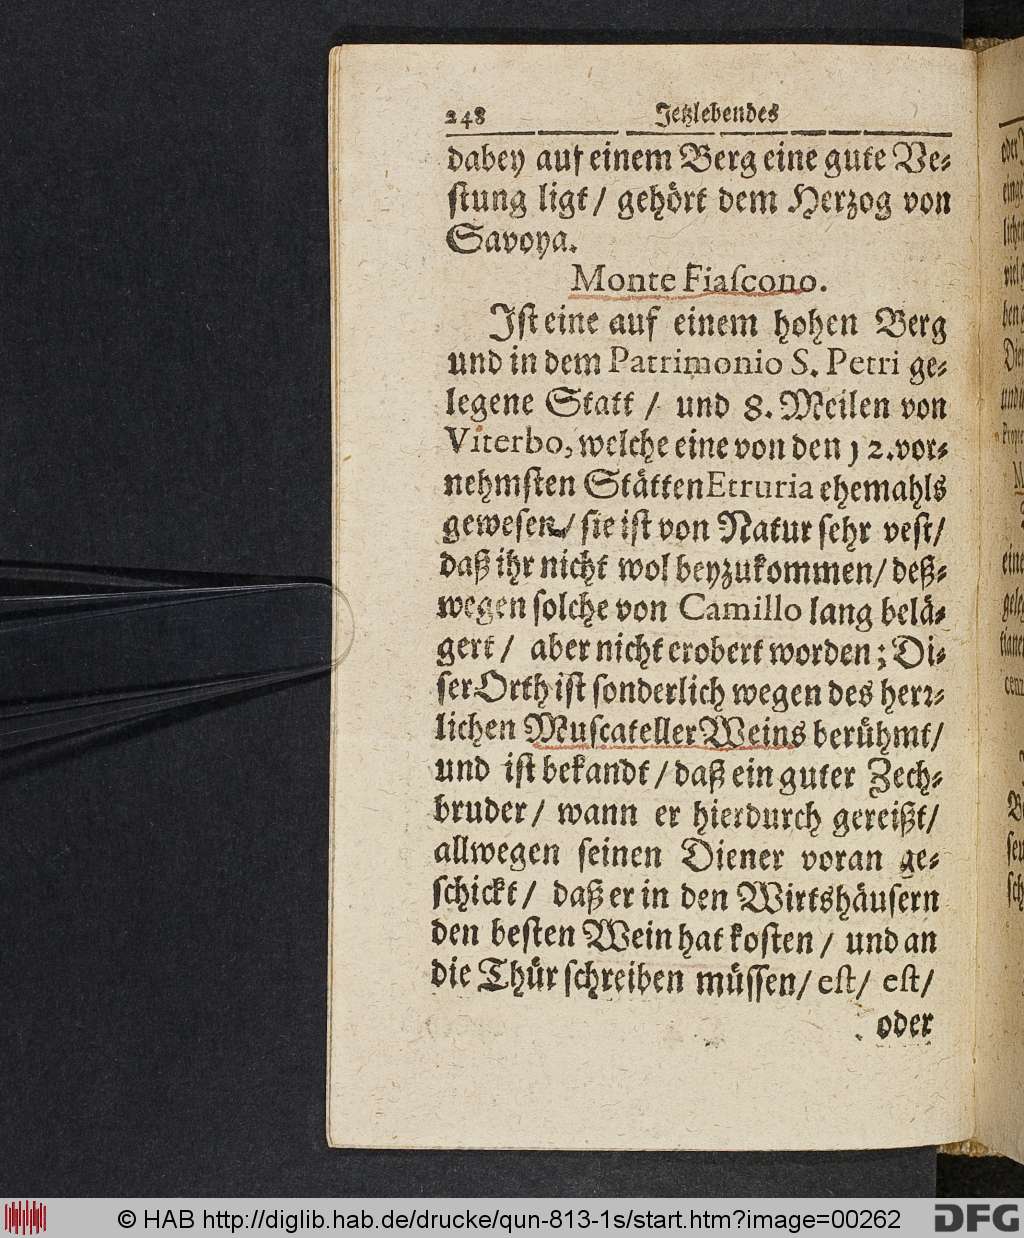 248 Jetzlebendes
dabey auf einem Berg eine gute Ve-
stung ligt / gehört dem Herzog von
Savoya.
Monte Fiascono.
Ist eine auf einem hohen Berg
und in dem Patrimonio S. Petri ge-
legene Statt / und 8. Meilen von
Viterbo, welche eine von den 12. vor-
nehmsten Stätten Etruria ehemahls
gewesen / sie ist von Natur sehr vest /
daß ihr nicht wol beyzukommen / deß-
wegen solche von Camillo lang belä-
gert / aber nicht erobert worden; Di-
ser Orth ist sonderlich wegen des herr-
lichen Muscateller Weins berühmt /
und ist bekandt / daß ein guter Zech-
bruder / wann er hierdurch gereißt /
allwegen seinen Diener voran ge-
schickt / daß er in den Wirtshäusern
den besten Wein hat kosten / und an
die Thür schreiben müssen / est / est /
oder
© HAB http://diglib.hab.de/drucke/qun-813-1s/start.htm?image=00262
DFG